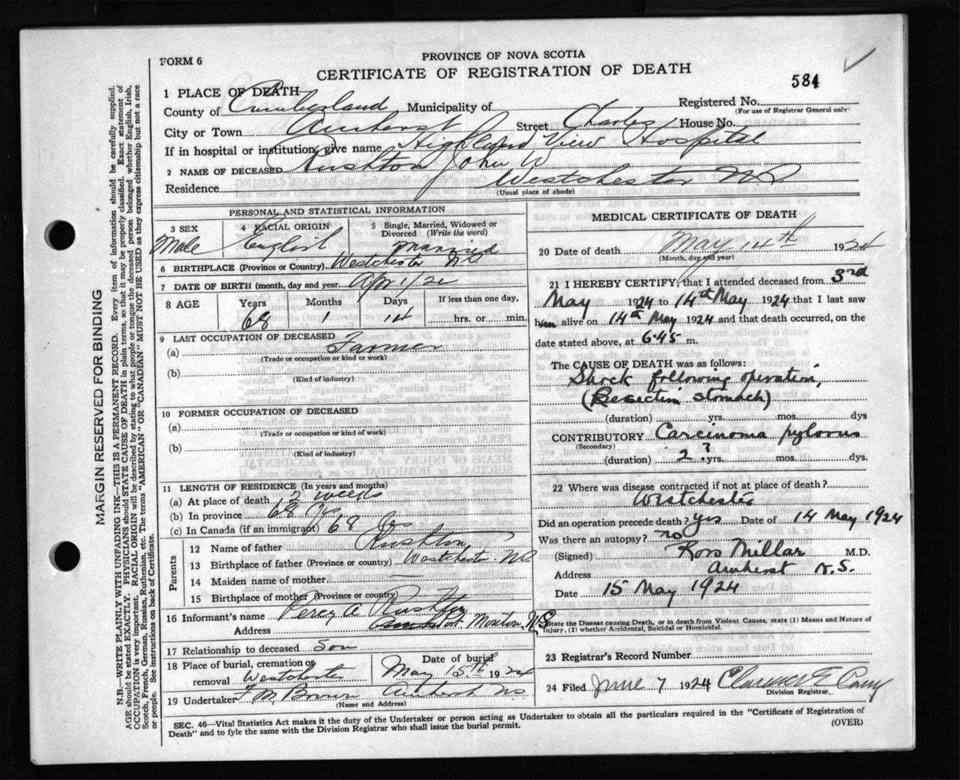 FORM 6
PROVINCE OF NOVA SCOTIA
CERTIFICATE OF REGISTRATION OF DEATH
584
1 PLACE OF DEATH—
County of Cumberland Municipality of Registered No.
(For use of Registrar General only)
City or Town Amherst Street Charles House No.
If in hospital or institution, give name Highland View Hospital
2 NAME OF DECEASED Rushton John W
Residence Westchester NS
(Usual place of abode)
PERSONAL AND STATISTICAL INFORMATION
3 SEX 4 RACIAL ORIGIN 5 Single, Married, Widowed or Divorced (Write the word)
Male English Married
6 BIRTHPLACE (Province or Country) Westchester NS
7 DATE OF BIRTH (month, day and year) Apr 1/
8 AGE Years Months Days If less than one day,
68 1 14 hrs. or min.
9 LAST OCCUPATION OF DECEASED
(a) Farmer
(Trade or occupation or kind or work)
(b)
(Kind of industry)
10 FORMER OCCUPATION OF DECEASED
(a)
(Trade or occupation or kind of work)
(b)
(Kind of industry)
11 LENGTH OF RESIDENCE (In years and months)
(a) At place of death 2 weeks
(b) In province 68 Yrs
(c) In Canada (if an immigrant) 68 Yrs
Parents
12 Name of father Rushton
13 Birthplace of father (Province or country) Westchester NS
14 Maiden name of mother
15 Birthplace of mother (Province or Country)
16 Informant's name Percy A Rushton
Address NS
17 Relationship to deceased Son
18 Place of burial, cremation or removal Westchester Date of burial May 15th 1924
19 Undertaker Brown Amherst NS
(Name and Address)
MEDICAL CERTIFICATE OF DEATH
20 Date of death May 14th 1924
(Month, day and year)
21 I HEREBY CERTIFY, that I attended deceased from 3rd
May 1924 to 14th May 1924 that I last saw
him alive on 14th May 1924 and that death occurred, on
date stated above, at 6.45 m.
The CAUSE OF DEATH was as follows:
Shock following operation,
(Resection stomach)
(duration) yrs. mos. dys
CONTRIBUTORY Carcinoma pylorus
(Secondary)
(duration) 2? yrs. mos. dys.
22 Where was disease contracted if not at place of death?
Westchester
Did an operation precede death? yes Date of 14 May 1924
Was there an autopsy? no
(Signed) Ross Millar M.D.
Address Amherst N.S.
Date 15 May 1924
State the Disease causing Death, or in death from Violent Causes, state (1) Means and Nature of Injury, (2) whether Accidental, Suicidal or Homicidal.
23 Registrar's Record Number
24 Filed June 7 1924 Clarence
Division Registrar
SEC. 46—Vital Statistics Act makes it the duty of the Undertaker or person acting as Undertaker to obtain all the particulars required in the "Certificate of Registration of
Death" and to fyle the same with the Division Registrar who shall issue the burial permit. (OVER)
MARGIN RESERVED FOR BINDING
N.B.—WRITE PLAINLY WITH UNFADING INK—THIS IS A PERMANENT RECORD. Every item of information should be carefully supplied.
AGE should be stated EXACTLY. PHYSICIANS should STATE CAUSE OF DEATH in plain terms, so that it may be properly classified. Exact statement of
OCCUPATION is very important. RACIAL ORIGIN will be described by stating to what people or tongue the deceased person belonged whether English, Irish,
Scotch, French, German, Russian, Ruthenian, etc. The terms "AMERICAN" OR "CANADIAN" MUST NOT BE USED as they express citizenship but not a race
or people. See instructions on back of Certificate.